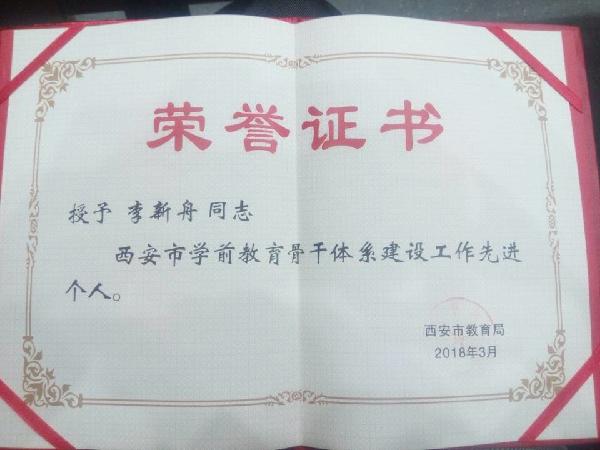 荣誉证书
授予 李新舟 同志
西安市学前教育骨干体系建设工作先进
个人。
西安市教育局
2018年3月